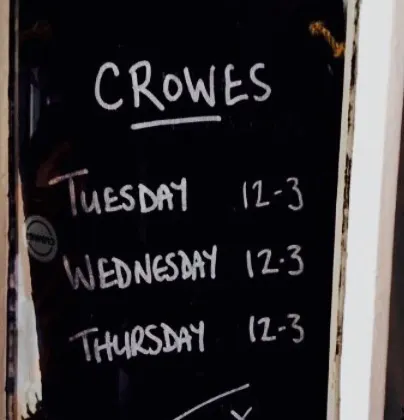 CROWES
TUESDAY 12-3
WEDNESDAY 12.3
THURSDAY 12-3